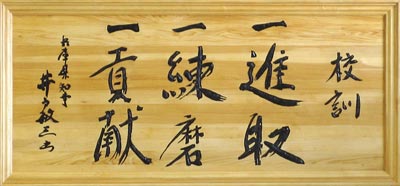 校訓
一進取
一練磨
一貢献
兵庫県知事
井戸敏三書